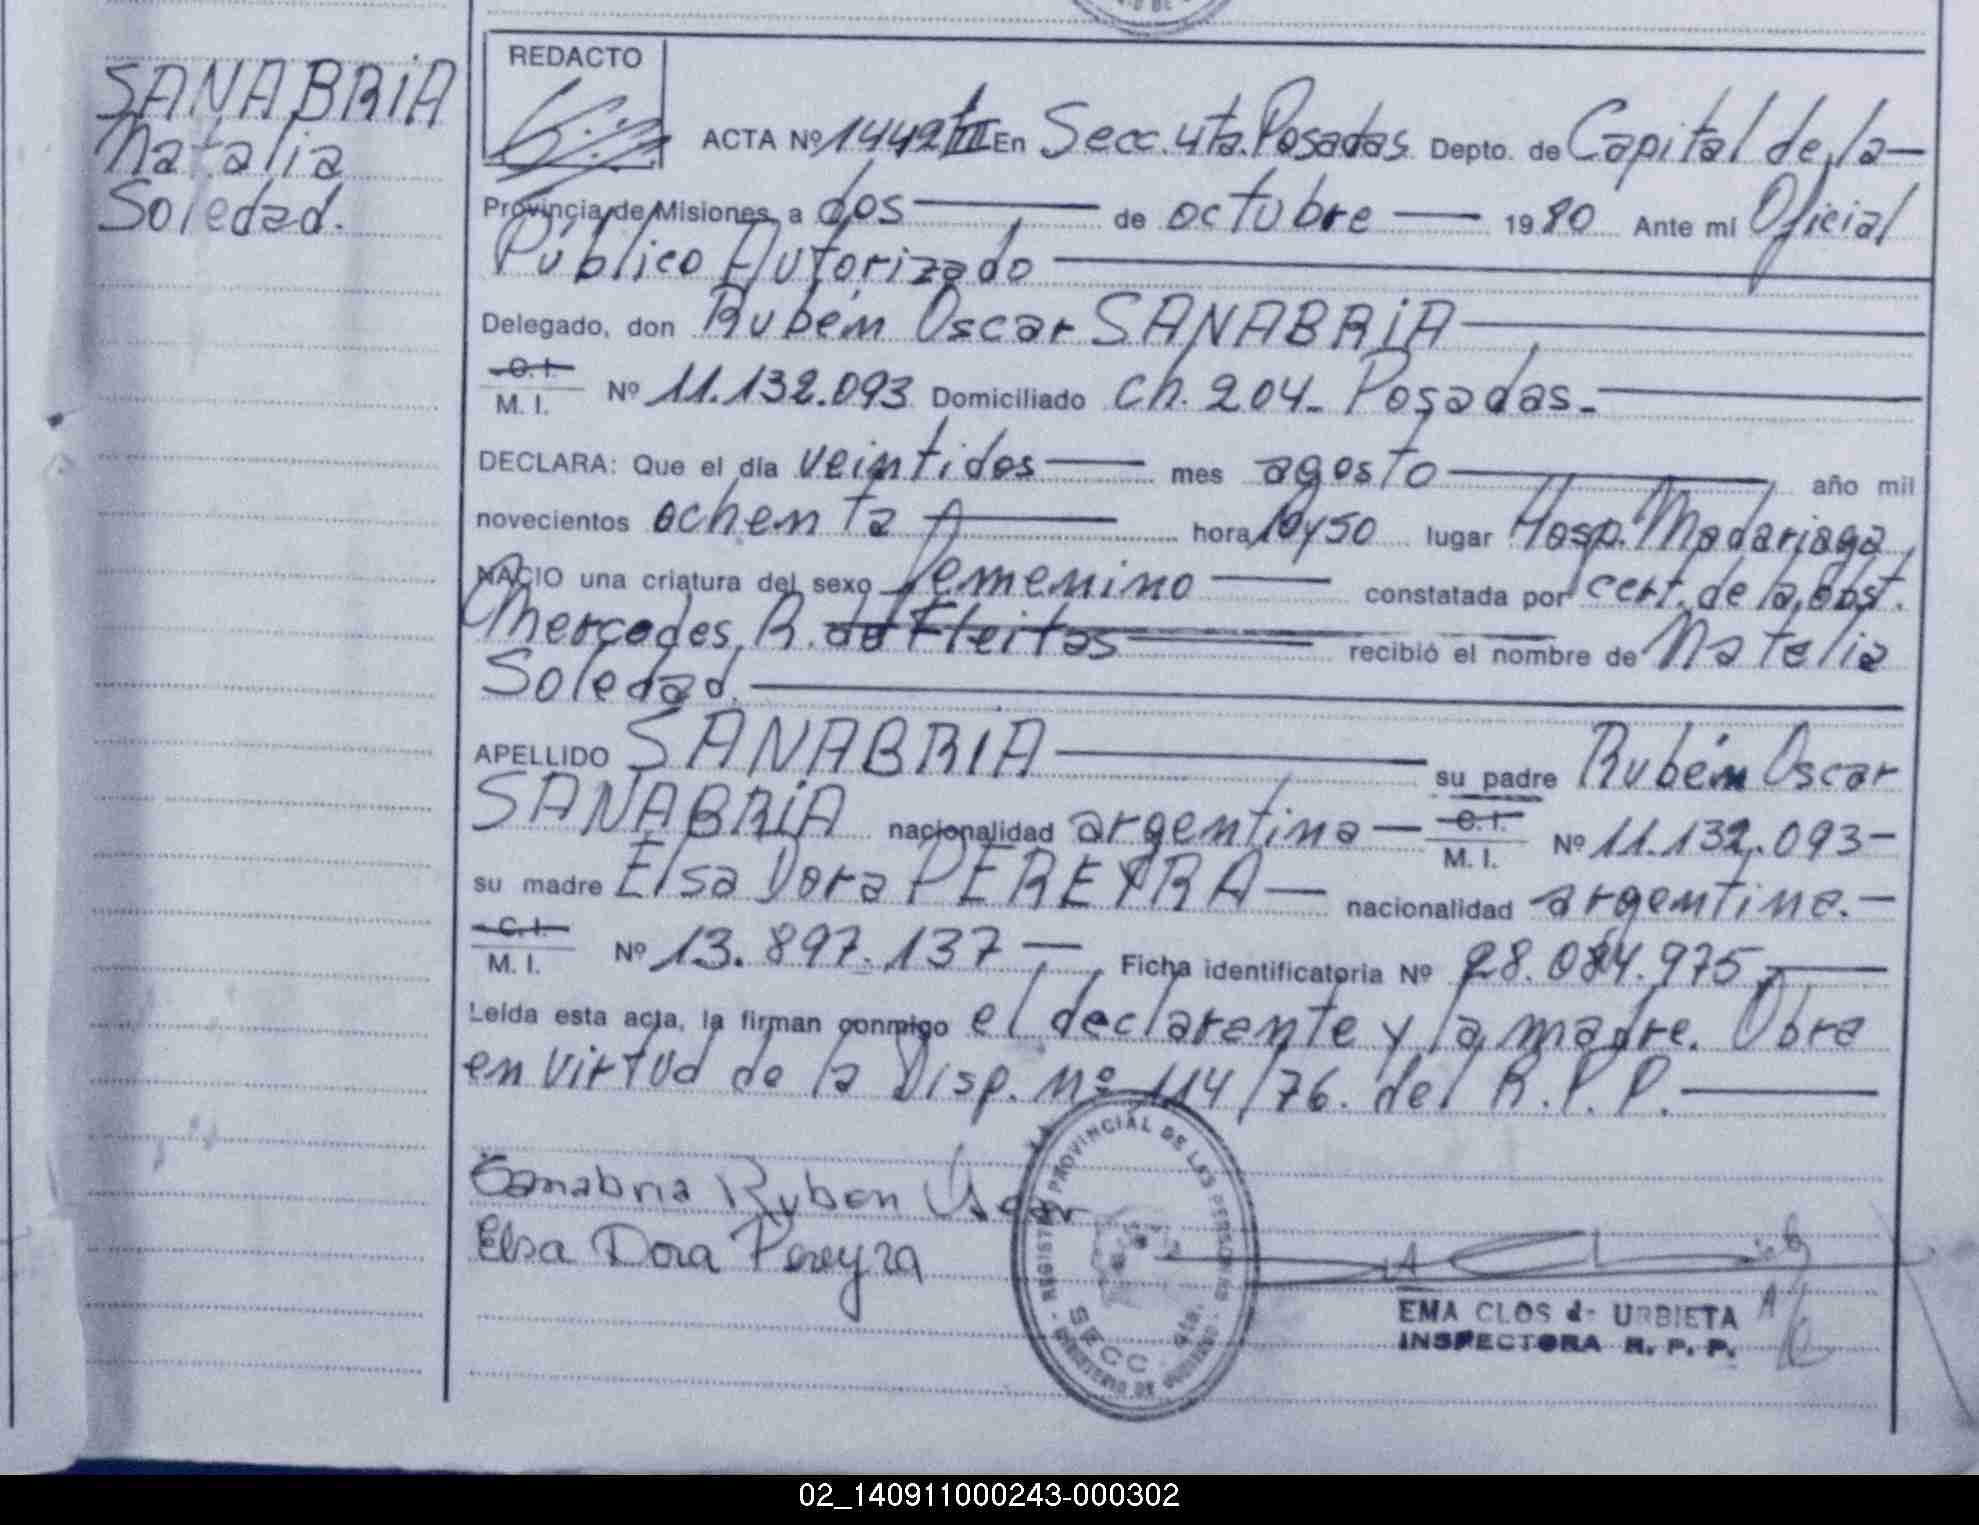 SANABRIA
Natalia
Soledad.
REDACTO
ACTA Nº 1442 tIII En Secc. 4ta. Posadas. Depto. de Capital de la —
Provincia de Misiones, a dos — de octubre — 1980 Ante mi Oficial
Público Autorizado —
Delegado, don Rubém Oscar SANABRIA —
C. I.
M. I. Nº 11.132.093 Domiciliado ch. 204. Posadas. —
DECLARA: Que el día veintidos — mes agosto — año mil
novecientos ochenta — hora 10y50 lugar Hosp. Madariaga,
NACIO una criatura del sexo femenino — constatada por cert. de la obst.
Mercedes R. de Fleitas — recibió el nombre de Natalia
Soledad. —
APELLIDO SANABRIA — su padre Rubén Oscar
SANABRIA nacionalidad argentina — C. I.
M. I. Nº 11.132.093 —
su madre Elsa Dora PEREYRA — nacionalidad argentina. —
C. I.
M. I. Nº 13.897.137 — Ficha identificatoria Nº 28.084.975 —
Leída esta acta, la firman conmigo el declarante y la madre. Obra
en virtud de la Disp. Nº 114/76. del R.P.P. —
Sanabria Ruben Oscar
Elsa Dora Pereyra
REGISTRO PROVINCIAL DE LAS PERSONAS
SECC. 4ta.
MINISTERIO DE GOBIERNO
EMA CLOS de URBIETA
INSPECTORA R. P. P.
02_140911000243-000302